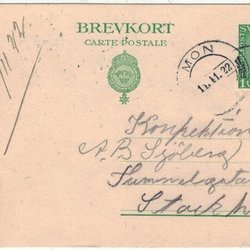 BREVKORT
CARTE POSTALE
MON
11.11.22
Konfektion
A B Sjöberg
Tunnelgatan
Stockh